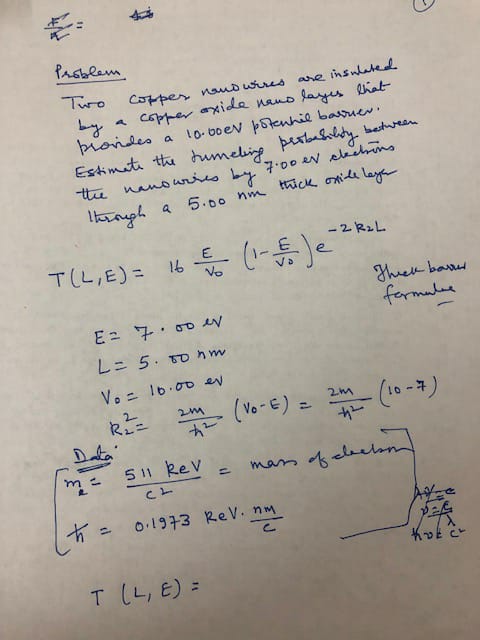 ①
Problem
Two copper nanowires are insulated
by a copper oxide nano layer that
provides a 10.00 eV potential barrier.
Estimate the tunneling probability between
the nanowires by 7.00 eV electrons
through a 5.00 nm thick oxide layer
T(L,E) = 16 E/V₀ (1 - E/V₀) e^{-2k₂L}
Thick barrier
formulae
E = 7.00 eV
L = 5.00 nm
V₀ = 10.00 eV
k₂² = 2m/ħ² (V₀-E) = 2m/ħ² (10-7)
Data:
mₑ = 511 KeV/c² = mass of electron
ħ = 0.1973 KeV. nm/c
T (L, E) =